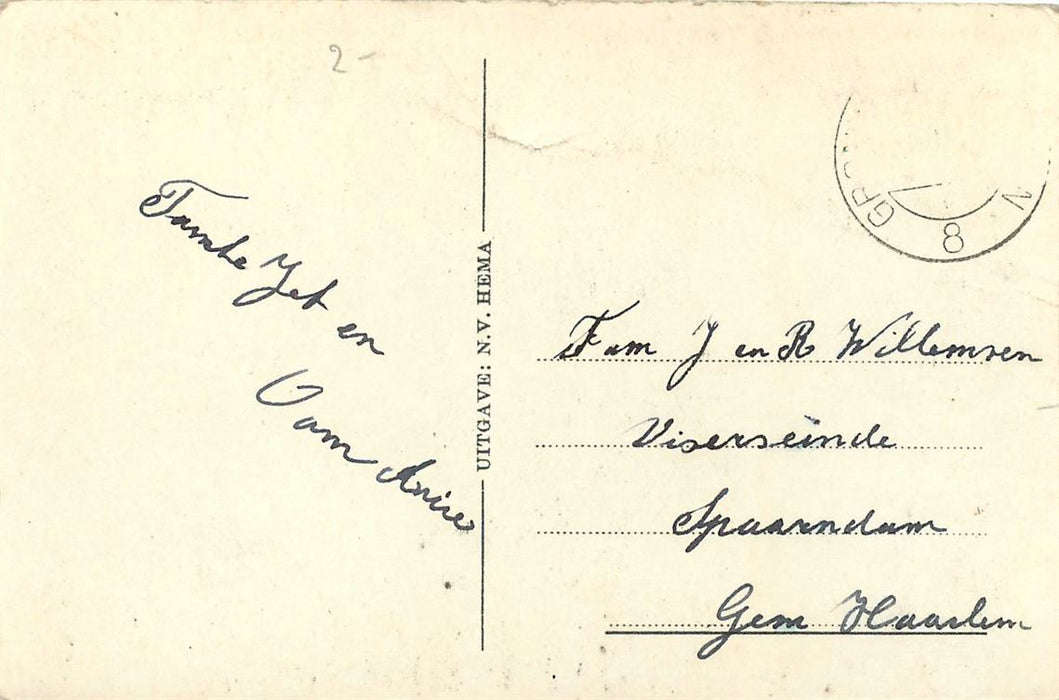 2-
Tante Jet en
Oom
UITGAVE: N.V. HEMA
GRO N
8
Fam J en R Willemsen
Viserseinde
Spaarndam
Gem Haarlem